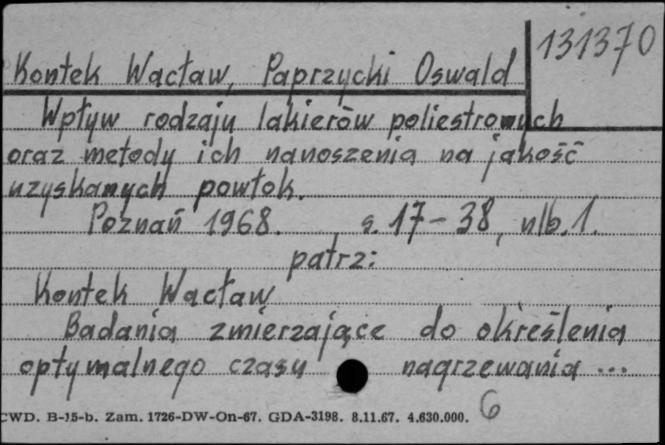 131370
Kontek Wacław, Paprzycki Oswald
Wpływ rodzaju lakierów poliestrowych
oraz metody ich nanoszenia na jakość
uzyskanych powłok.
Poznań 1968. s. 17-38, nlb. 1.
patrz:
Kontek Wacław
Badania zmierzające do określenia
optymalnego czasu nagrzewania ...
CWD. B-15-b. Zam. 1726-DW-On-67. GDA-3198. 8.11.67. 4.630.000. 6